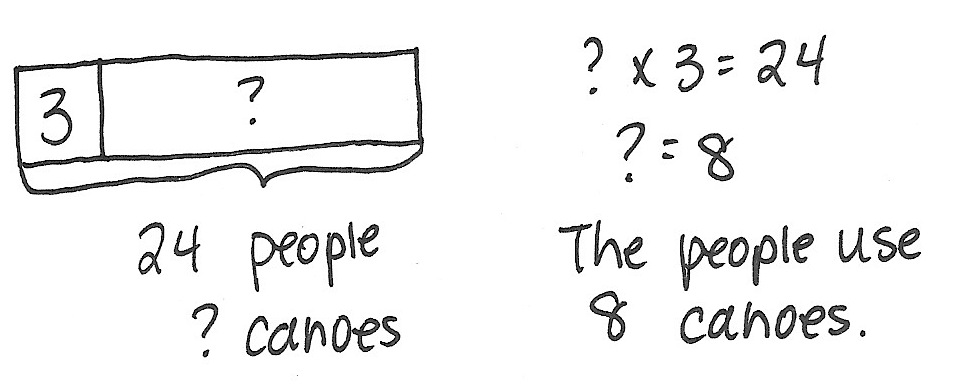 3 ?
24 people
? canoes
? x 3 = 24
? = 8
The people use
8 canoes.